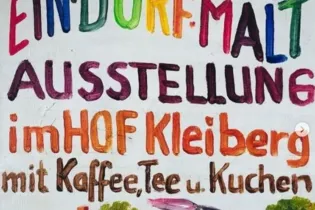 EIN DORF MALT
AUSSTELLUNG
im HOF Kleiberg
mit Kaffee, Tee u. Kuchen